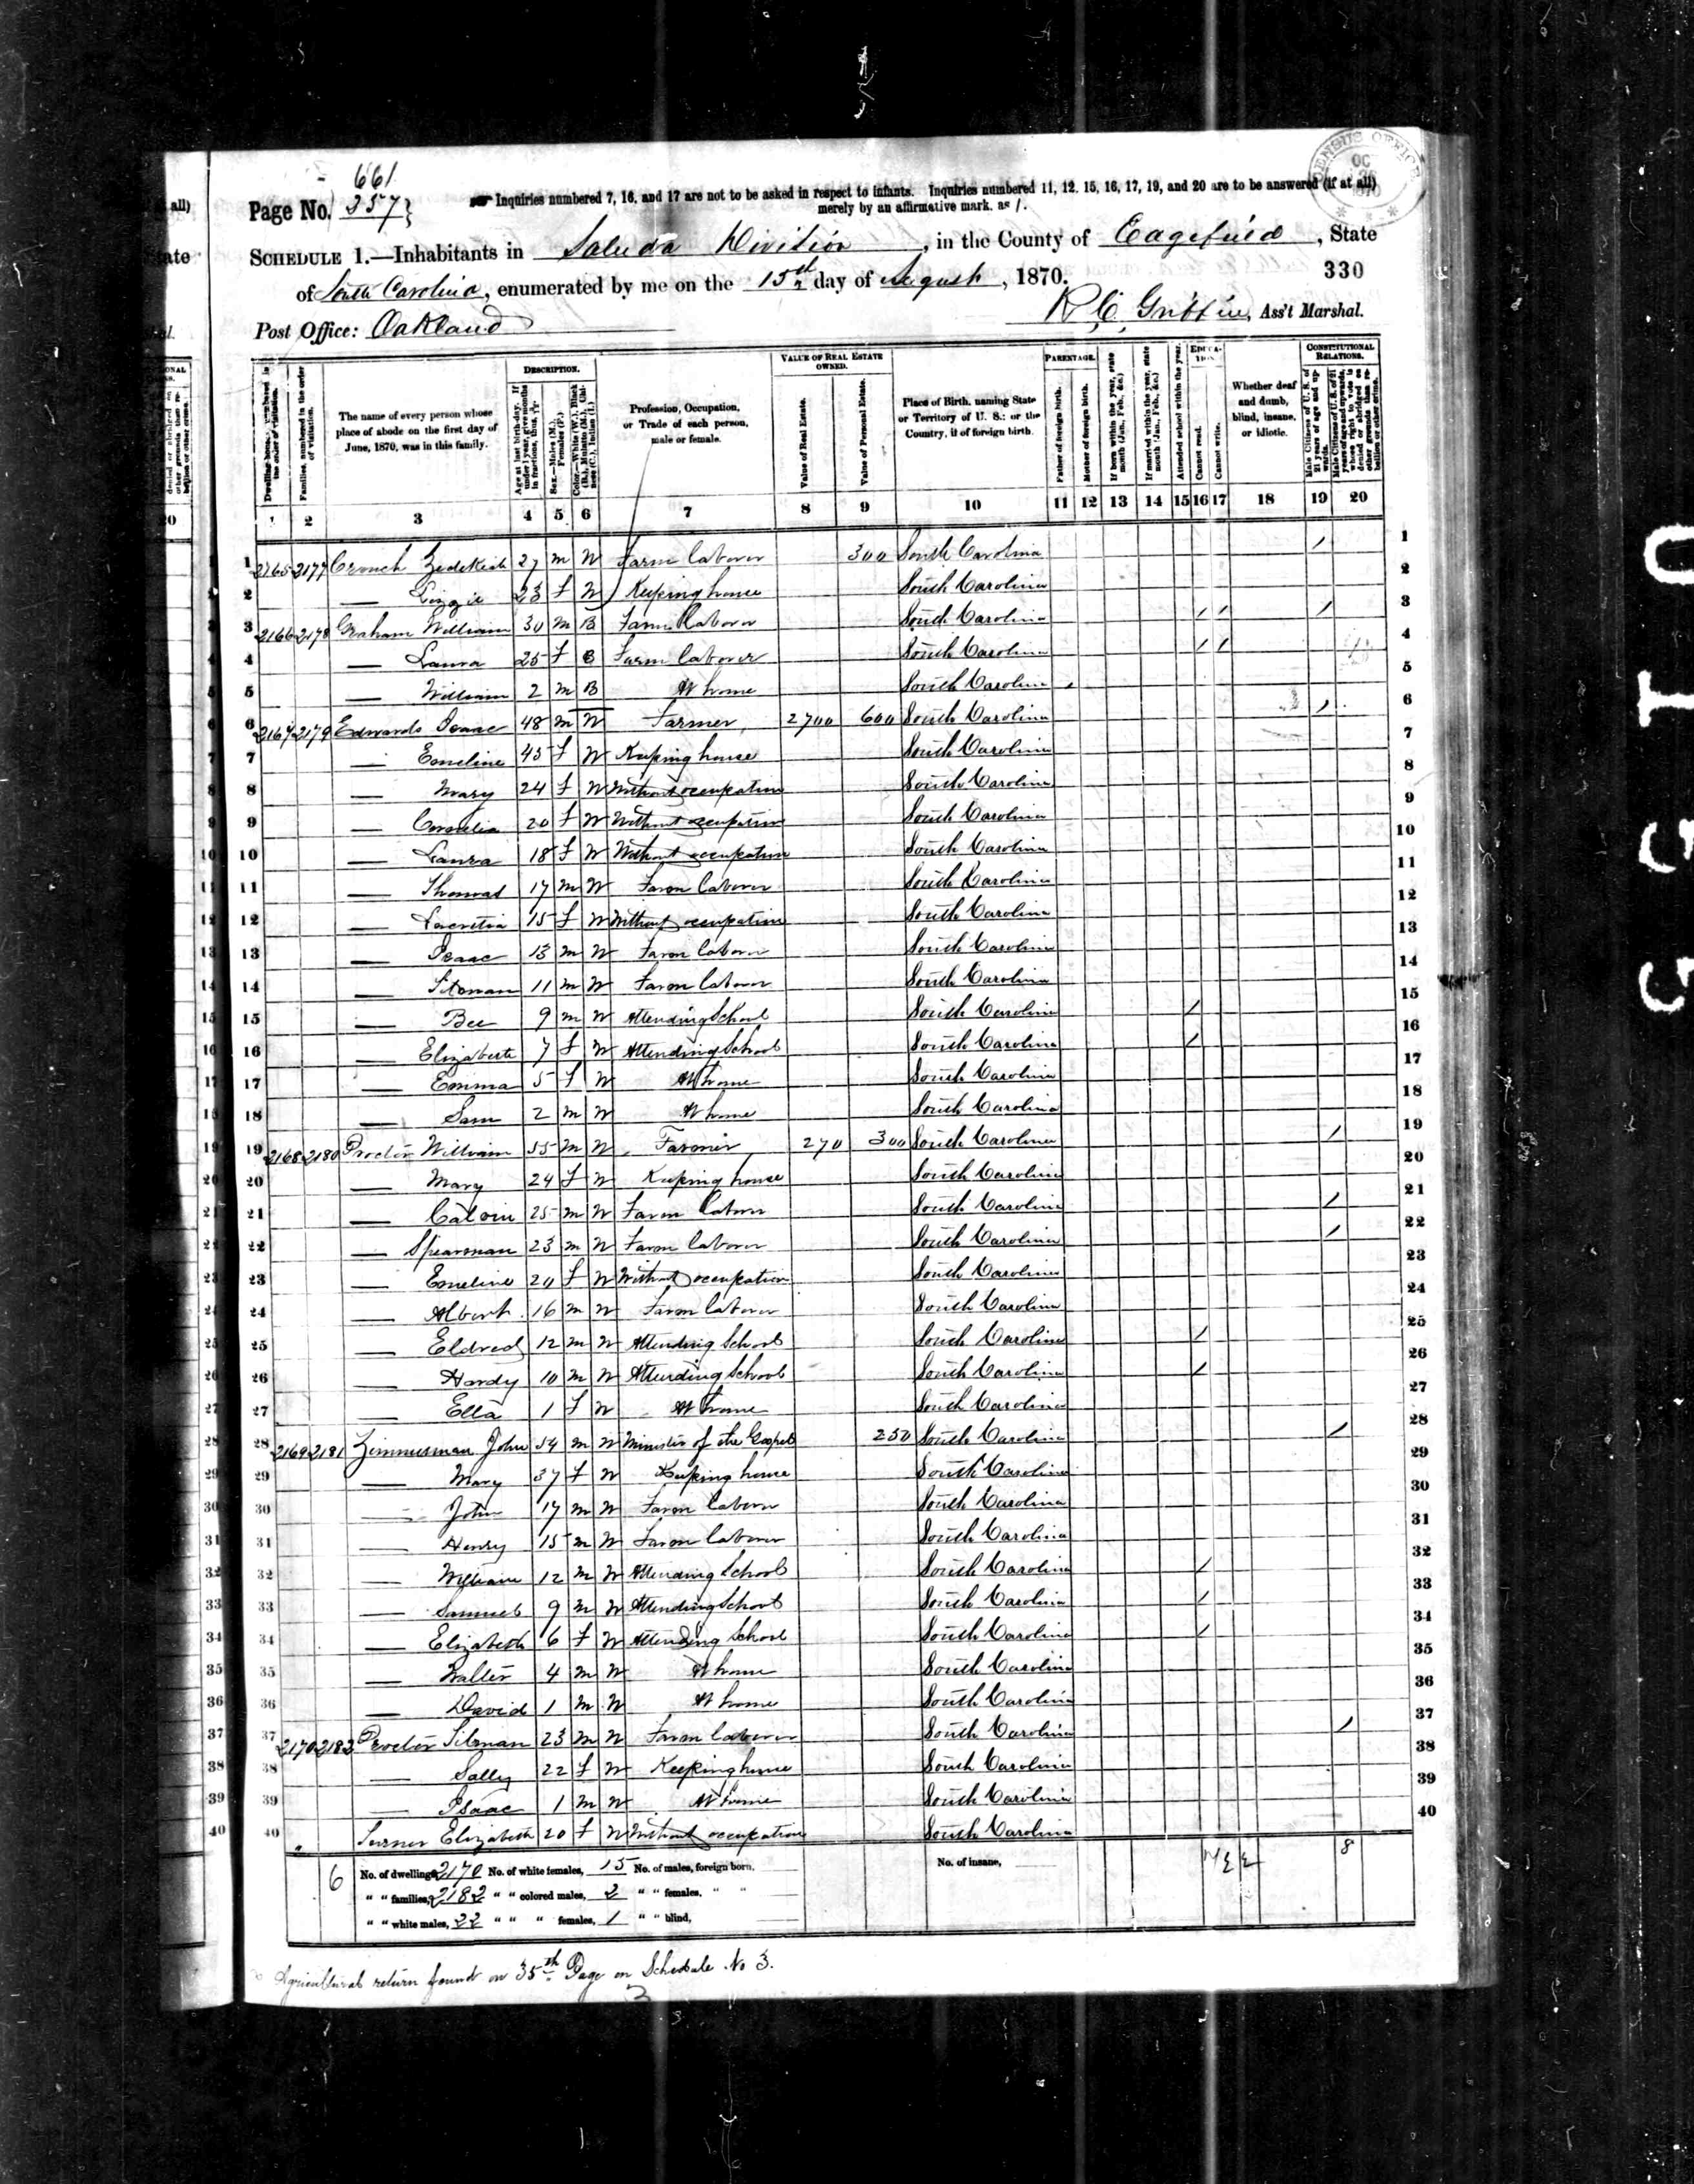 661
Page No. 357
Inquiries numbered 7, 16, and 17 are not to be asked in respect to infants. Inquiries numbered 11, 12, 15, 16, 17, 19, and 20 are to be answered (if at all)
merely by an affirmative mark, as /.
SCHEDULE 1.—Inhabitants in Saluda Division, in the County of Edgefield, State
of South Carolina, enumerated by me on the 15th day of August, 1870.
330
Post Office: Oakland
R C Griffin, Ass't Marshal.
DESCRIPTION.
VALUE OF REAL ESTATE OWNED.
PARENTAGE.
EDUCATION.
CONSTITUTIONAL RELATIONS.
Dwelling-houses, numbered in the order of visitation.
Families, numbered in the order of visitation.
The name of every person whose place of abode on the first day of June, 1870, was in this family.
Age at last birth-day. If under 1 year, give months in fractions, thus, 3/12
Sex.—Males (M.), Females (F.)
Color.—White (W.), Black (B.), Mulatto (M.), Chinese (C.), Indian (I.)
Profession, Occupation, or Trade of each person, male or female.
Value of Real Estate.
Value of Personal Estate.
Place of Birth, naming State or Territory of U. S.; or the Country, if of foreign birth.
Father of foreign birth.
Mother of foreign birth.
If born within the year, state month (Jan., Feb., &c.)
If married within the year, state month (Jan., Feb., &c.)
Attended school within the year.
Cannot read.
Cannot write.
Whether deaf and dumb, blind, insane, or idiotic.
Male Citizens of U. S. of 21 years of age and upwards.
Male Citizens of U. S. of 21 years of age and upwards, whose right to vote is denied or abridged on other grounds than rebellion or other crime.
1 2 3 4 5 6 7 8 9 10 11 12 13 14 15 16 17 18 19 20
1 2165 2177 Crouch Zedekiah 27 m W Farm laborer 300 South Carolina / 1
2 — Lizzie 23 f W Keeping house South Carolina 2
3 2166 2178 Graham William 30 m B Farm laborer South Carolina / / / 3
4 — Laura 25 f B Farm laborer South Carolina / / 4
5 — William 2 m B At home South Carolina 5
6 2167 2179 Edwards Isaac 48 m W Farmer 2700 600 South Carolina / 6
7 — Emeline 45 f W Keeping house South Carolina 7
8 — Mary 24 f W Without occupation South Carolina 8
9 — Cornelia 20 f W Without occupation South Carolina 9
10 — Laura 18 f W Without occupation South Carolina 10
11 — Thomas 17 m W Farm laborer South Carolina 11
12 — Lucretia 15 f W Without occupation South Carolina 12
13 — Isaac 13 m W Farm laborer South Carolina 13
14 — Sitman 11 m W Farm laborer South Carolina 14
15 — Bee 9 m W Attending School South Carolina / 15
16 — Elizabeth 7 f W Attending School South Carolina / 16
17 — Emma 5 f W At home South Carolina 17
18 — Sam 2 m W At home South Carolina 18
19 2168 2180 Proctor William 55 m W Farmer 270 300 South Carolina / 19
20 — Mary 24 f W Keeping house South Carolina 20
21 — Calvin 25 m W Farm laborer South Carolina / 21
22 — Spearman 23 m W Farm laborer South Carolina / 22
23 — Emeline 20 f W Without occupation South Carolina 23
24 — Albert 16 m W Farm laborer South Carolina 24
25 — Eldred 12 m W Attending School South Carolina / 25
26 — Hardy 10 m W Attending School South Carolina / 26
27 — Ella 1 f W At home South Carolina 27
28 2169 2181 Zimmerman John 54 m W Minister of the Gospel 250 South Carolina / 28
29 — Mary 37 f W Keeping house South Carolina 29
30 — John 17 m W Farm laborer South Carolina 30
31 — Henry 15 m W Farm laborer South Carolina 31
32 — William 12 m W Attending School South Carolina / 32
33 — Samuel 9 m W Attending School South Carolina / 33
34 — Elizabeth 6 f W Attending School South Carolina / 34
35 — Walter 4 m W At home South Carolina 35
36 — David 1 m W At home South Carolina 36
37 2170 2182 Proctor Sitman 23 m W Farm laborer South Carolina / 37
38 — Sally 22 f W Keeping house South Carolina 38
39 — Isaac 1 m W At home South Carolina 39
40 Turner Elizabeth 20 f W Without occupation South Carolina 40
6 No. of dwellings, 2170 No. of white females, 15 No. of males, foreign born, No. of insane, 7 2 2 8
" " families, 2182 " " colored males, 2 " " females, " "
" " white males, 22 " " " females, 1 " " blind,
Agricultural return found on 35th Page on Schedule No 3.